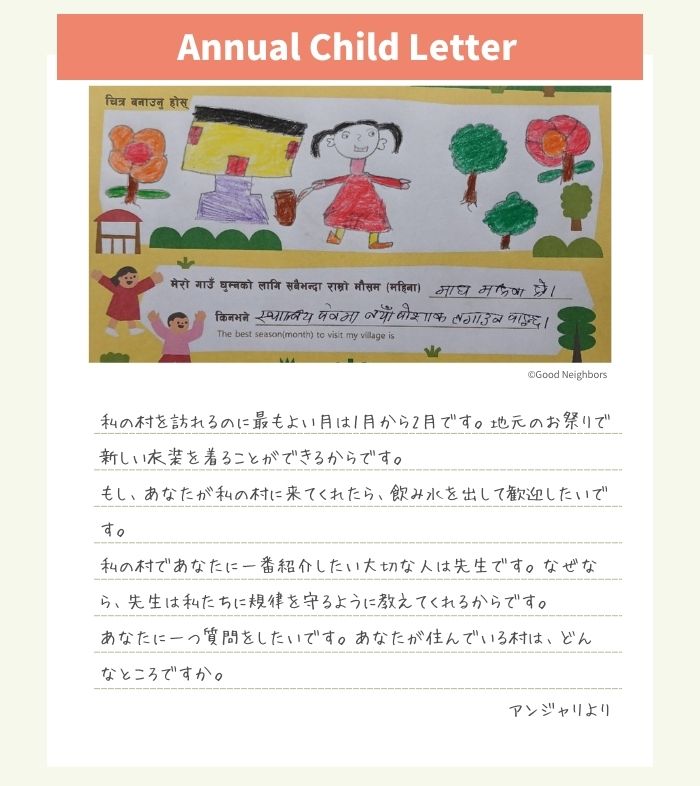 Annual Child Letter
चित्र बनाउनु होस्
मेरो गाउँ घुम्नको लागि सबैभन्दा राम्रो मौसम (महिना) माघ
किनभने स्थानीय नयाँ पोशाक लगाउन
The best season(month) to visit my village is
©Good Neighbors
私の村を訪れるのに最もよい月は1月から2月です。地元のお祭りで
新しい衣装を着ることができるからです。
もし、あなたが私の村に来てくれたら、飲み水を出して歓迎したいで
す。
私の村であなたに一番紹介したい大切な人は先生です。なぜな
ら、先生は私たちに規律を守るように教えてくれるからです。
あなたに一つ質問をしたいです。あなたが住んでいる村は、どん
なところですか。
アンジャリより